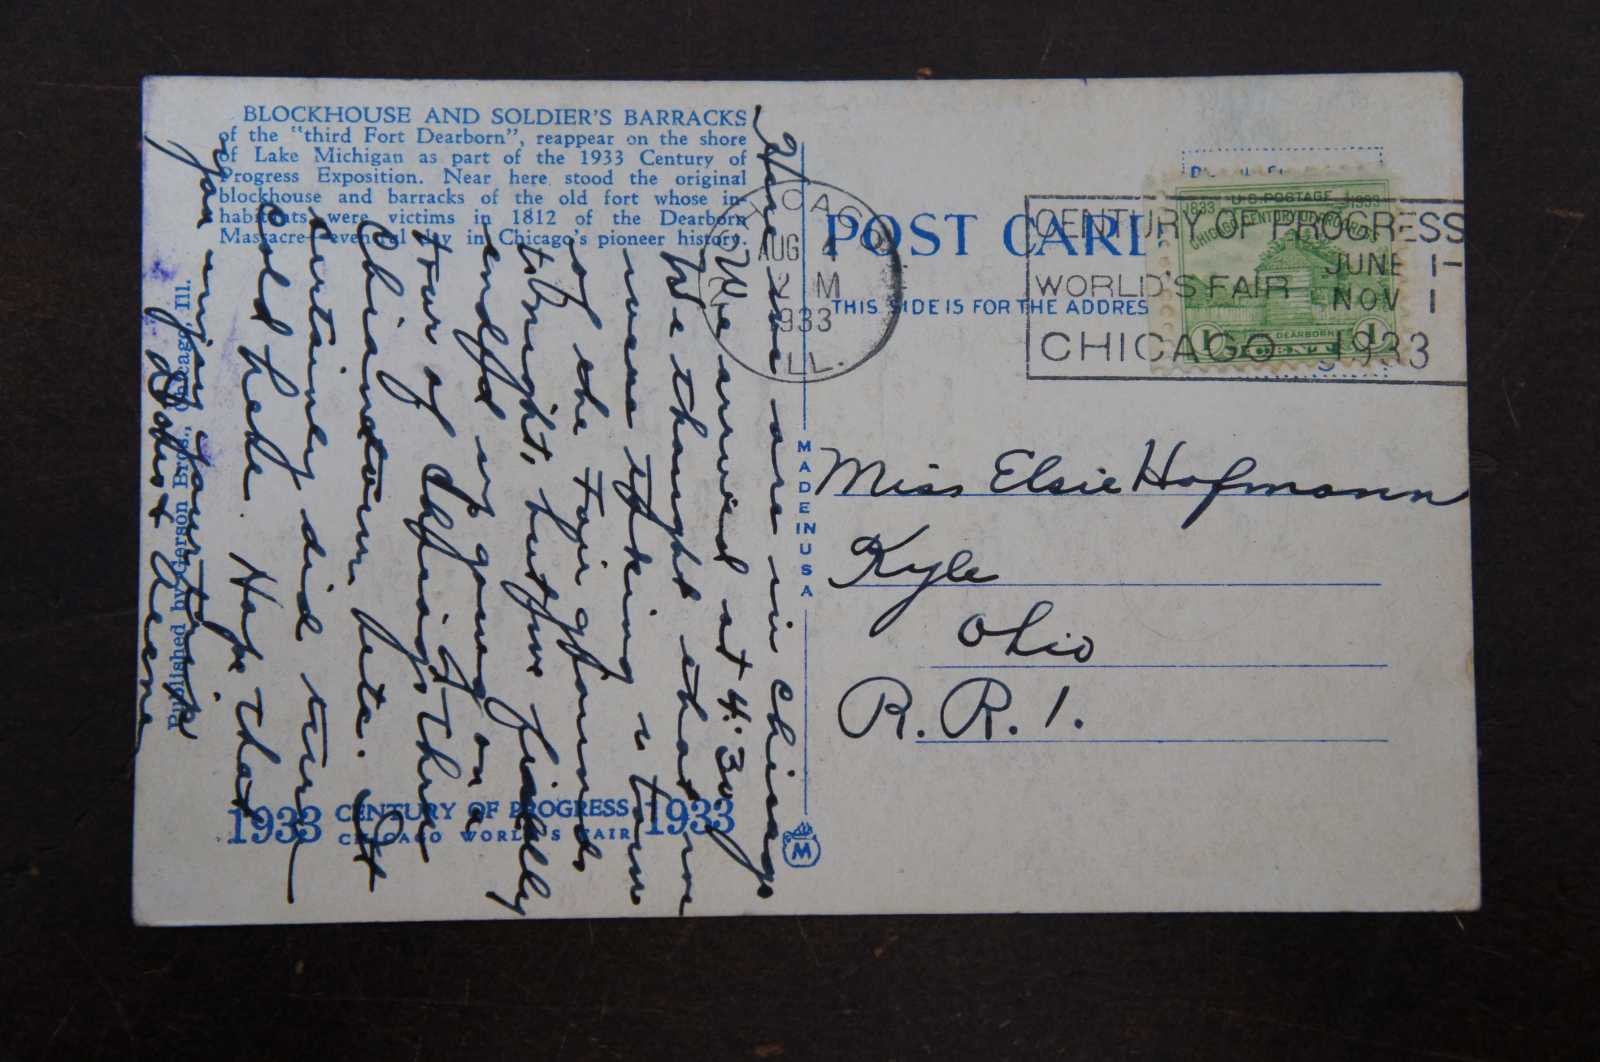 BLOCKHOUSE AND SOLDIER'S BARRACKS
of the "third Fort Dearborn", reappear on the shore
of Lake Michigan as part of the 1933 Century of
Progress Exposition. Near here stood the original
blockhouse and barracks of the old fort whose in-
habitants were victims in 1812 of the Dearborn
Massacre—eventful day in Chicago's pioneer history.
Here we are in Chicago
We arrived at 4:30
We thought that we
were taking a tour
of the fair grounds
tonight, but we finally
ended up going on a
tour of Chicago thru
Chinatown late. It
certainly did turn
cold here. Hope that
you enjoy your trip
Published by Gerson Bros., Chicago, Ill.
1933 CENTURY OF PROGRESS 1933
CHICAGO WORLD'S FAIR
MADE IN USA
M
CHICAGO
AUG
2 M
1933
ILL.
POST CARD
THIS SIDE IS FOR THE ADDRES
CENTURY OF PROGRESS
WORLD'S FAIR JUNE 1-
NOV 1
CHICAGO 1933
U.S. POSTAGE
1833 1933
CHICAGO CENTURY OF PROGRESS
DEARBORN
1 CENT 1
Miss Elsie Hofmann
Kyle
Ohio
R.R.1.